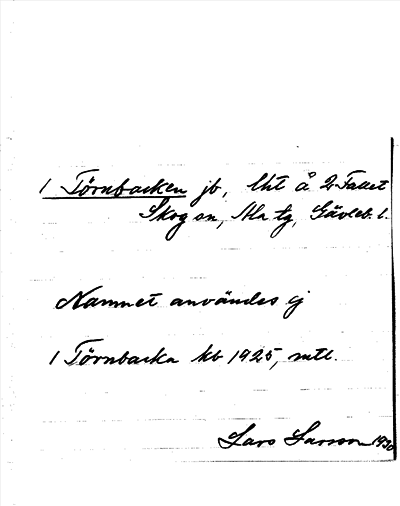 1 Törnbacken jb, lht å 2 Fallet
Skog sn, Ala tg, Gävleb. l.
Namnet användes ej
1 Törnbacka kb 1925, mtl.
Lars Larsson 1930